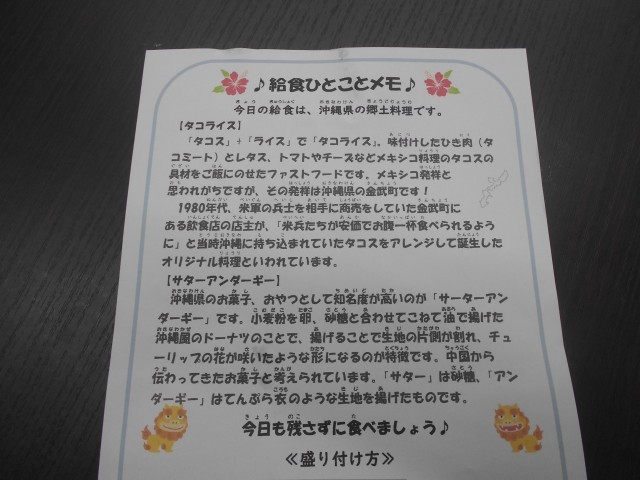 ♪給食ひとことメモ♪
今日の給食は、沖縄県の郷土料理です。
【タコライス】
「タコス」+「ライス」で「タコライス」。味付けしたひき肉（タ
コミート）とレタス、トマトやチーズなどメキシコ料理のタコスの
具材をご飯にのせたファストフードです。メキシコ発祥と
思われがちですが、その発祥は沖縄県の金武町です！
1980年代、米軍の兵士を相手に商売をしていた金武町に
ある飲食店の店主が、「米兵たちが安価でお腹一杯食べられるよう
に」と当時沖縄に持ち込まれていたタコスをアレンジして誕生した
オリジナル料理といわれています。
【サターアンダーギー】
沖縄県のお菓子、おやつとして知名度が高いのが「サーターアン
ダーギー」です。小麦粉を卵、砂糖と合わせてこねて油で揚げた
沖縄風のドーナツのことで、揚げることで生地の片側が割れ、チュ
ーリップの花が咲いたような形になるのが特徴です。中国から
伝わってきたお菓子と考えられています。「サター」は砂糖、「アン
ダーギー」はてんぷら衣のような生地を揚げたものです。
今日も残さずに食べましょう♪
≪盛り付け方≫